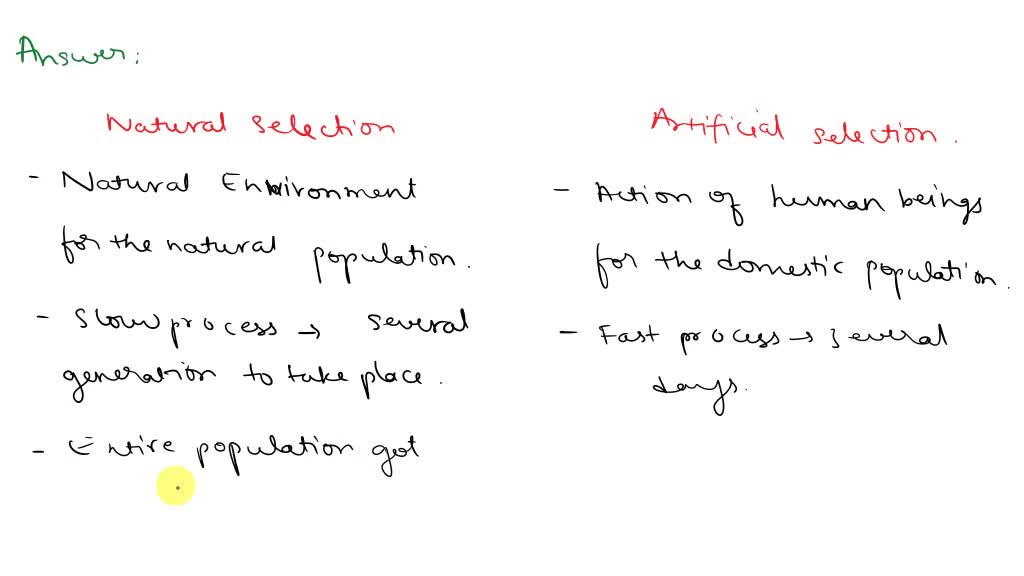 Answer:
Natural selection
- Natural Environment
for the natural population.
- Slow process → several
generation to take place.
- Entire population got
Artificial selection.
- Action of human beings
for the domestic population.
- Fast process → several
days.